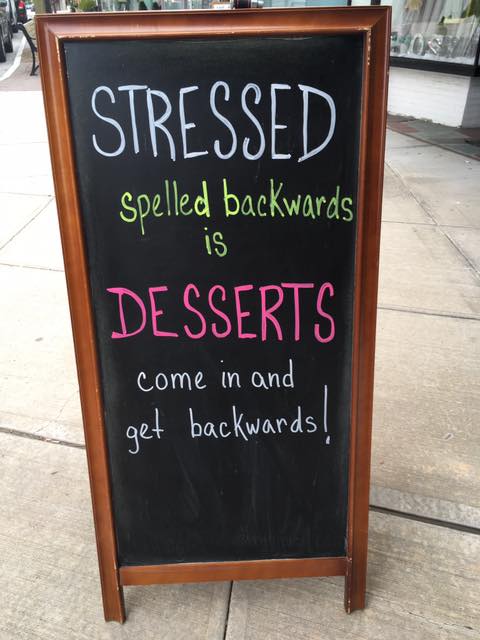 STRESSED
spelled backwards
is
DESSERTS
come in and
get backwards!